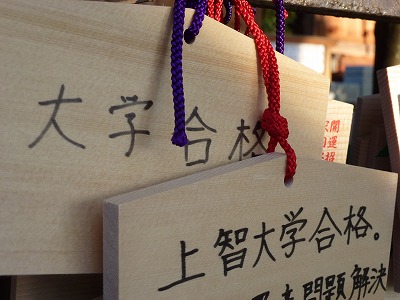 大学合格
上智大学合格。
問題解決
開運